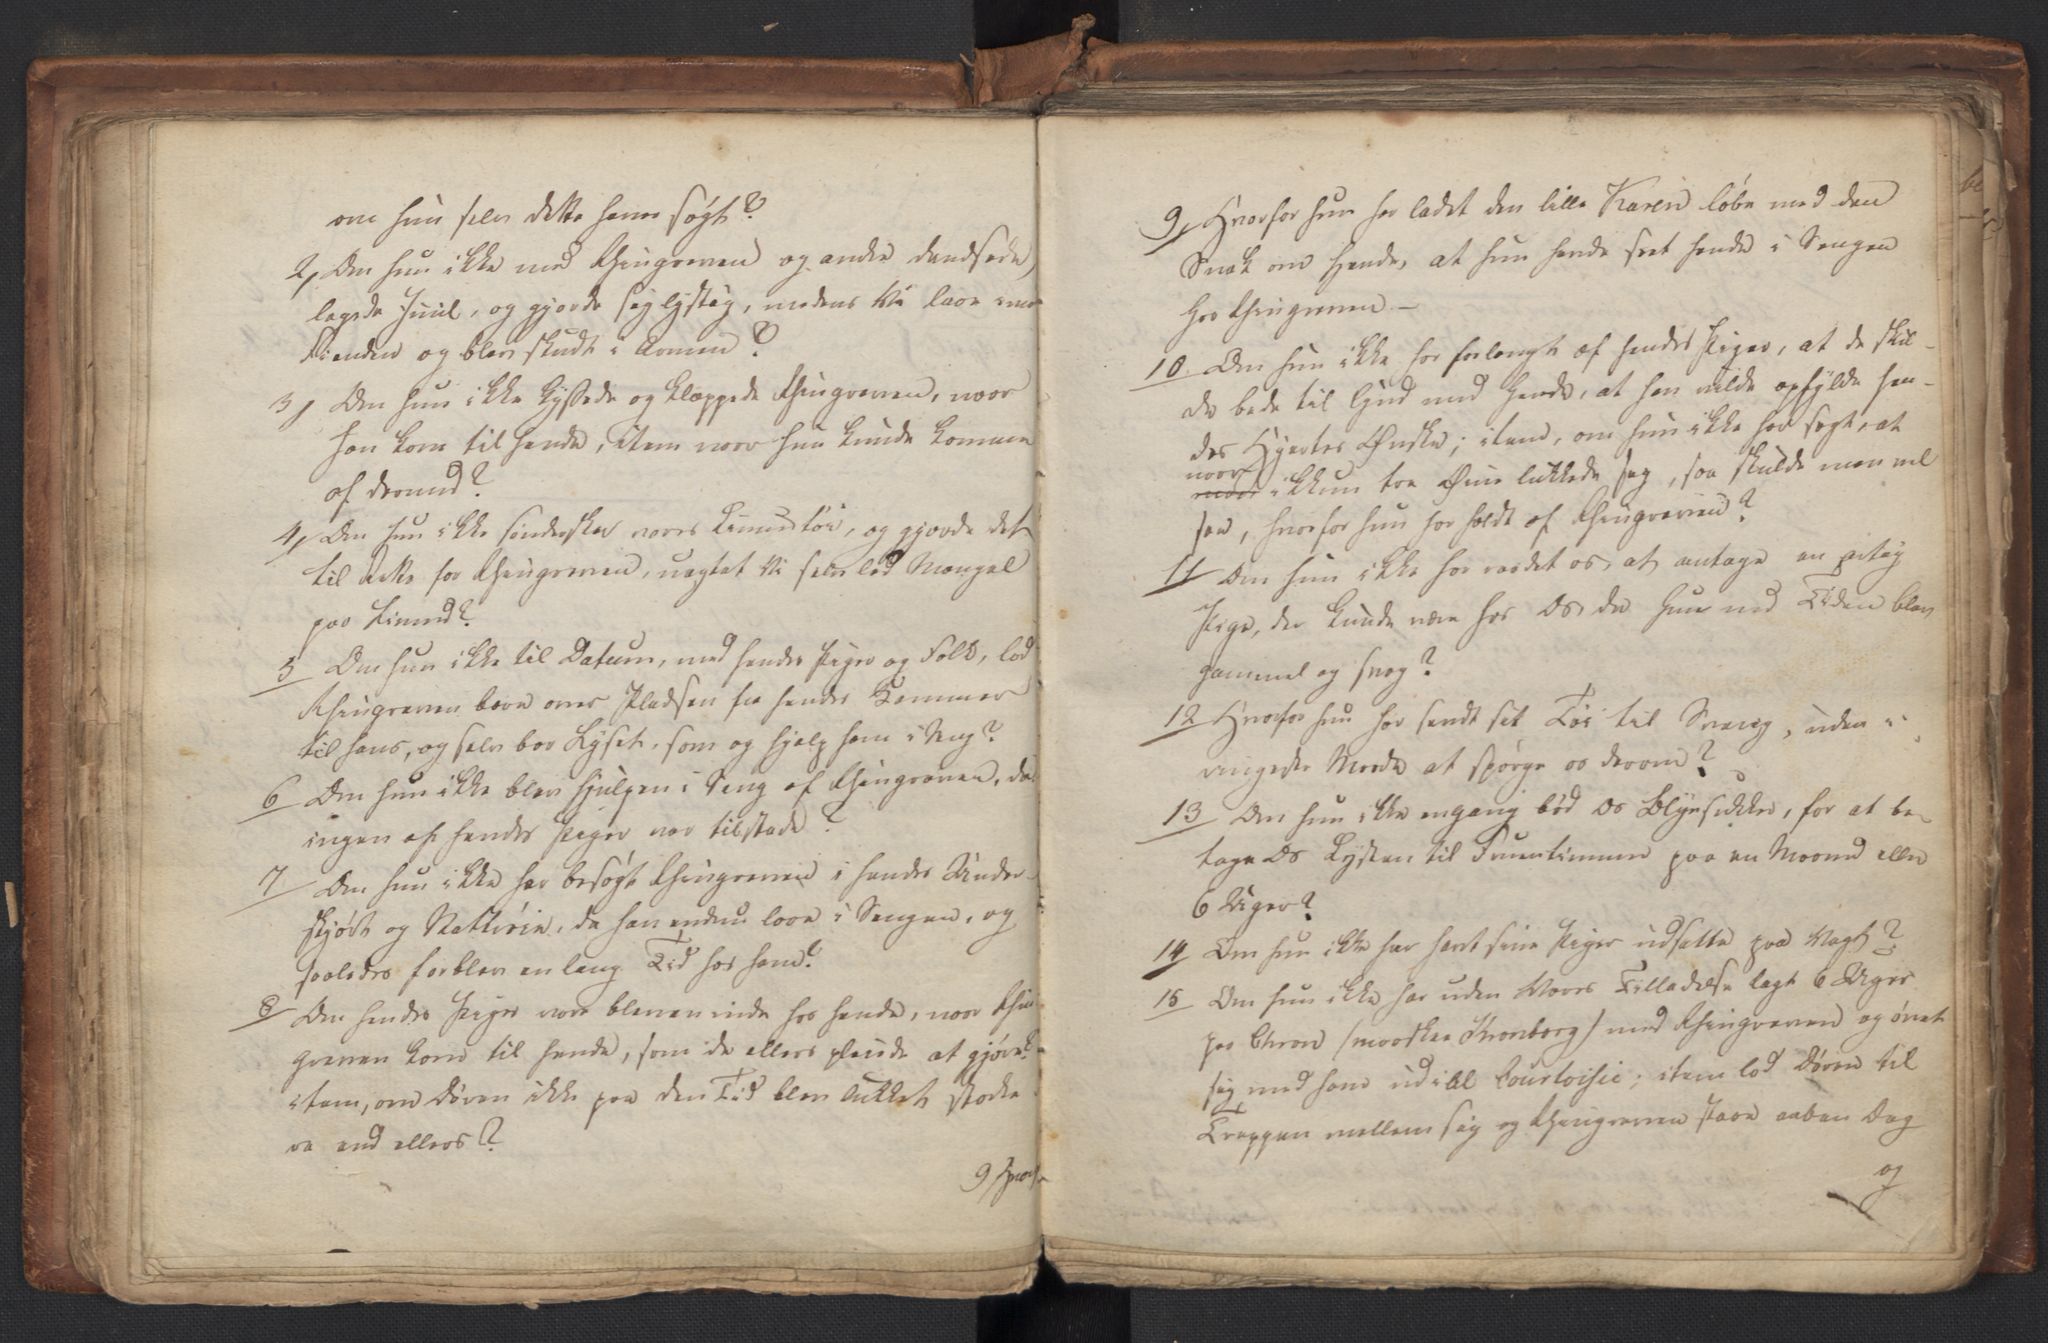 om hun selv dette haver søgt?
2, Om hun ikke med Rhingreven og andre dandsede,
legede Juul, og gjorde sig lystig, medens Vi laae imod
Fienden og blev skudt i Armen?
3, Om hun ikke kyssede og klappede Rhingreven, naar
han kom til hende, item naar hun kunde komme
af derved?
4, Om hun ikke sønderskar vores Linnetøi, og gjorde det
til for Rhingreven, uagtet Vi selv lod Mangel
paa Linned?
5 Om hun ikke til Datum, med hendes Piger og Folk, lod
Rhingreven bære over Pladsen fra hendes Kammer
til hans, og selv bar Lyset, som og hjalp ham i Seng?
6 Om hun ikke blev hjulpen i Seng af Rhingreven, da
ingen af hendes Piger var tilstæde?
7 Om hun ikke har besøgt Rhingreven i hendes Under-
skjørt og Nattrøie, da han endnu laae i Sengen, og
saaledes forblev en lang Tid hos ham?
8 Om hendes Piger vare bleven inde hos hende, naar Rhin
greven kom til hende, som de ellers pleiede at gjøre?
item, om Døren ikke paa den Tid blev lukket stærke
re end ellers?
9, Hvorfor
9, Hvorfor hun har ladet den lille Karen løbe med den
Snak om hende, at hun havde seet hende i Sengen
hos Rhingreven –
10 Om hun ikke har forlangt af hendes Piger, at de skul-
de bede til Gud med hende, at han vilde opfylde hen-
des Hjertes Ønske; item, om hun ikke har sagt, at
naar
ikkun toe Øine lukkede sig, saa skulde man vel
see, hvorfor hun har holdt af Rhingreven?
11 Om hun ikke har raadet os, at antage en artig
Pige, der kunde være hos Os, da hun med Tiden blev
gammel og svag?
12 Hvorfor hun har sendt sit Tøi til Sverrig, uden i
ringeste Maade at spørge os derom?
13 Om hun ikke engang bød Os Blyesukker, for at be-
tage Os Lysten til Fruentimmer paa en Maaned eller
6 Uger?
14 Om hun ikke har havt sine Piger udsatte paa Vagt?
15 Om hun ikke har uden Vores Tilladelse lagt 6 Uger
paa Chron (maaskee Kronborg) med Rhingreven og øvet
sig med ham ud i al Courtoisie; item lod Døren til
Trappen mellem sig og Rhingreven staae aaben Dag
og